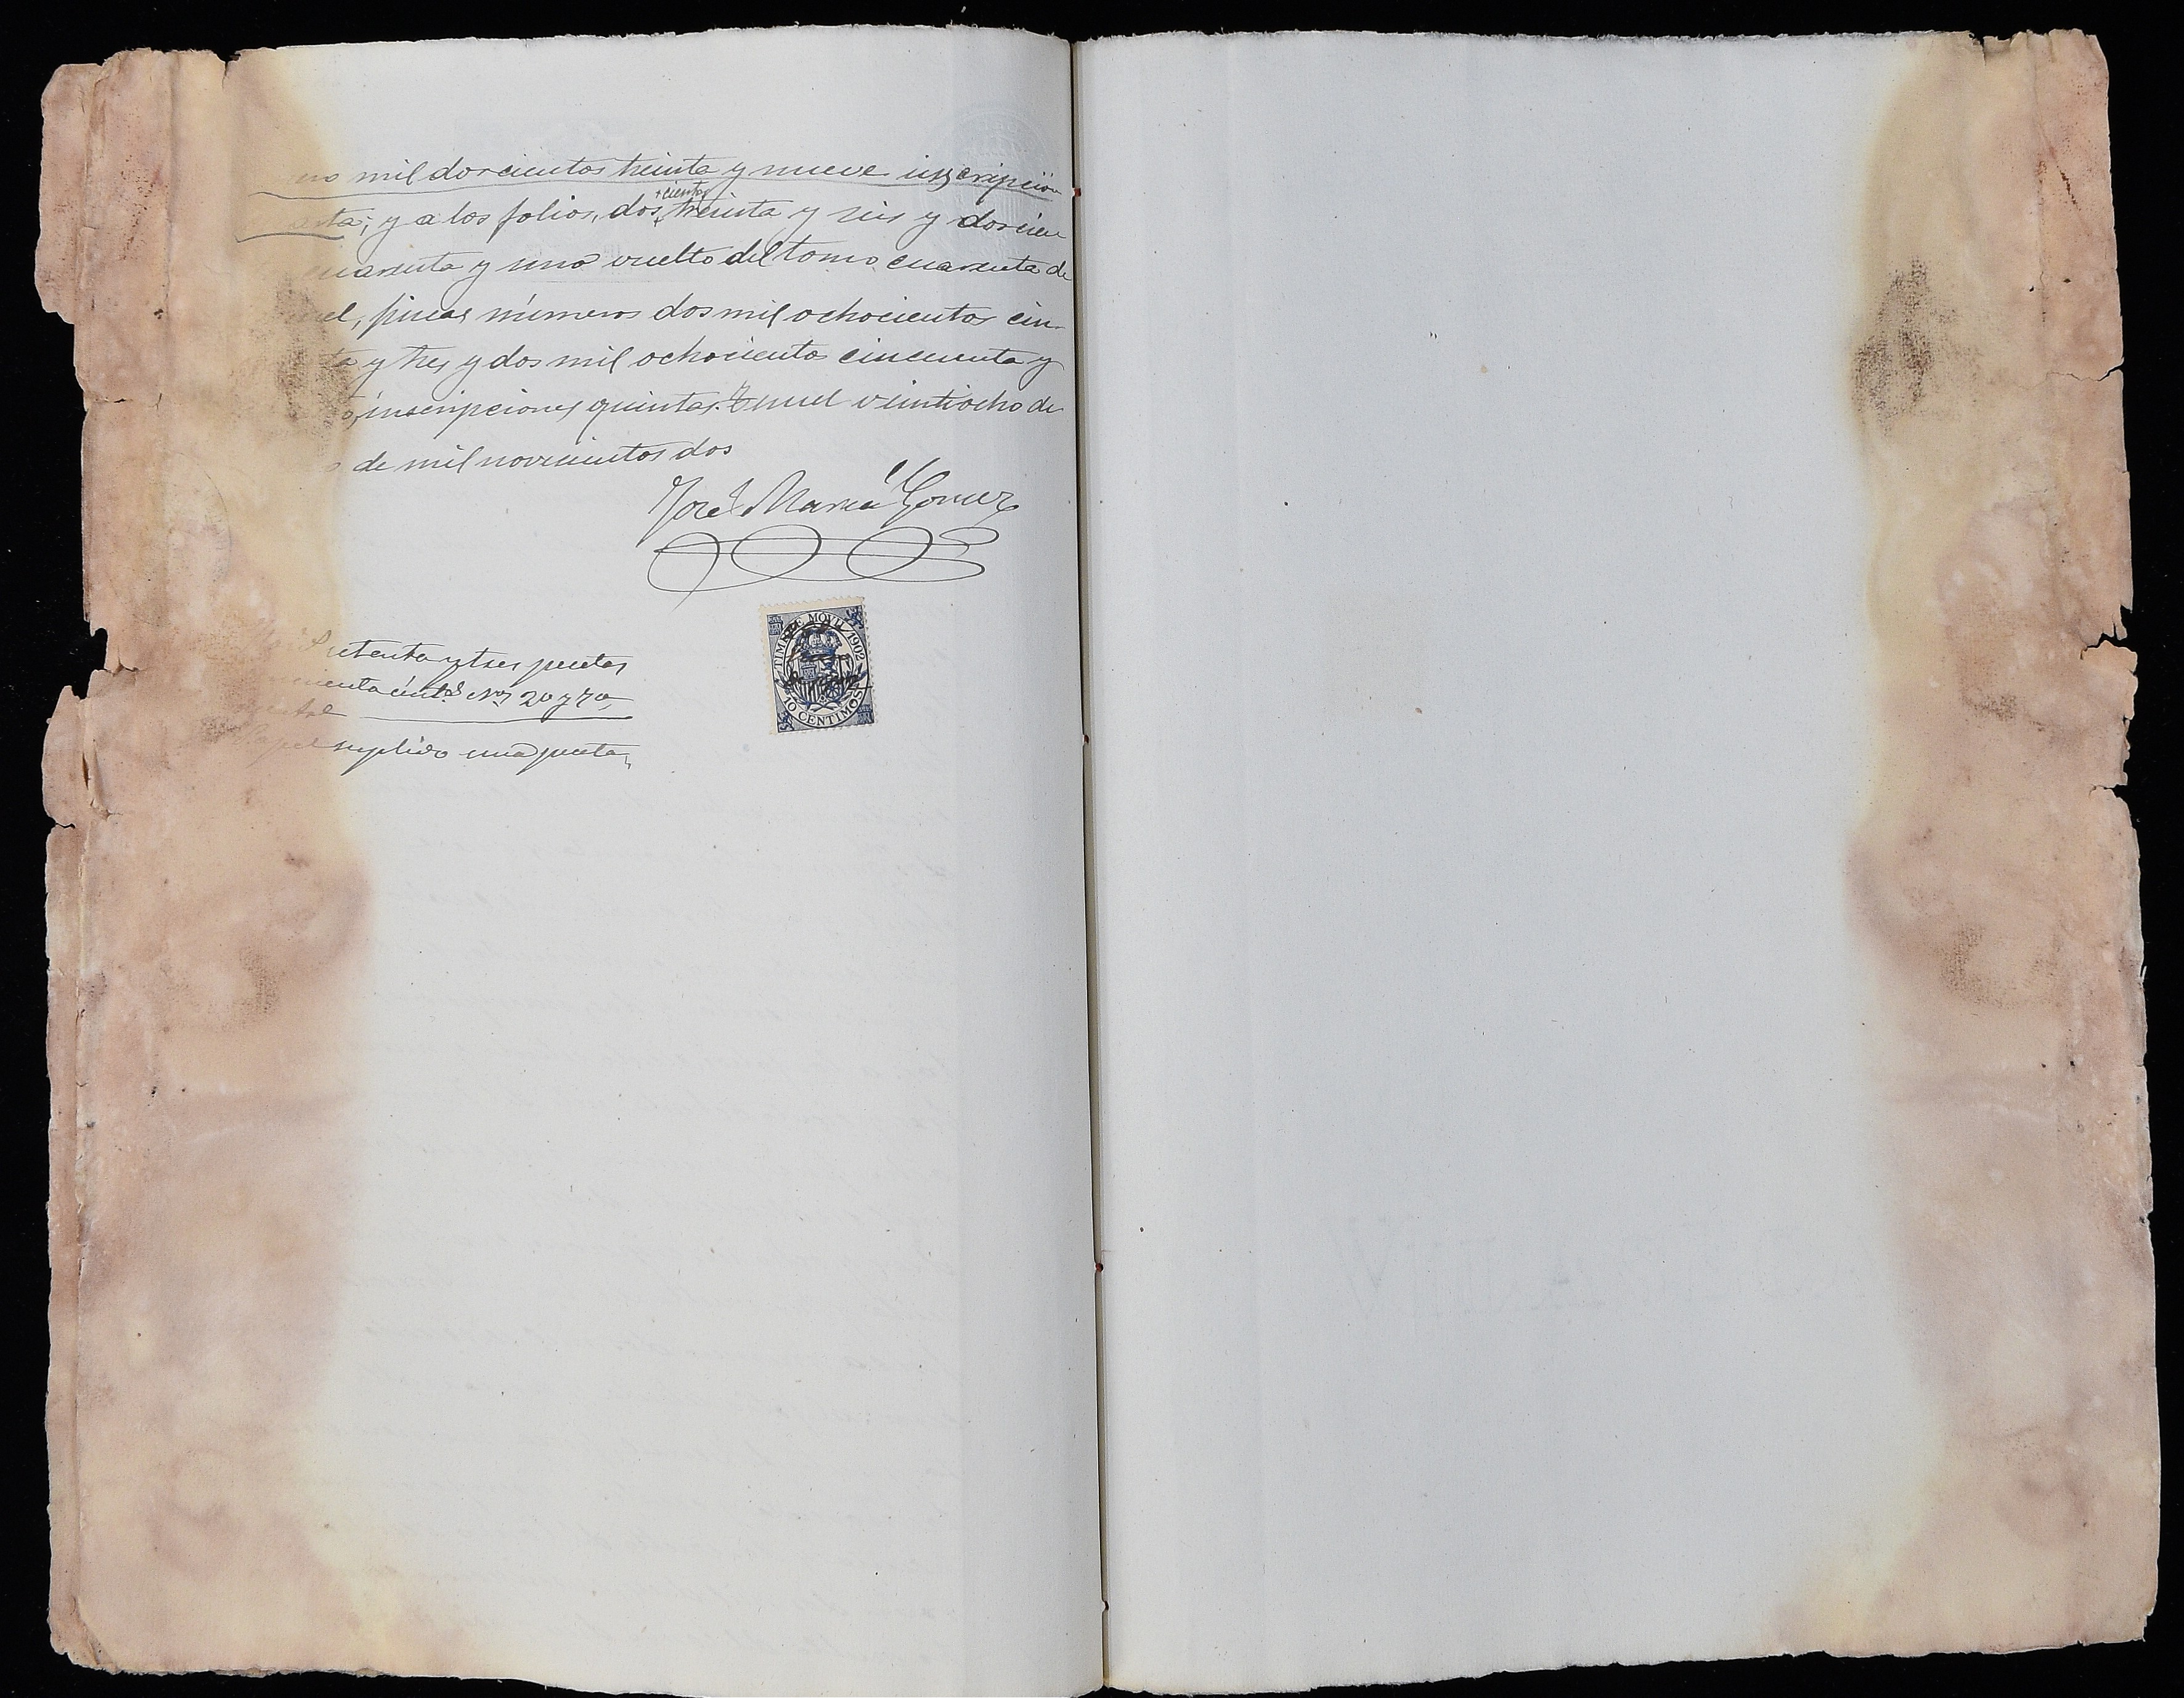 mil doscientos treinta y nueve inscripción
y a los folios, dos +cientos treinta y seis y doscien
cuarenta y uno vuelto del tomo cuarenta de
fincas números dos mil ochocientos cin-
y tres y dos mil ochocientos cincuenta y
inscripciones quintas. Teruel veintiocho de
de mil novecientos dos
José María Gomez
TIMBRE MOVIL 1902
10 CENTIMOS
Setenta y tres pesetas
cént.s Nos 20 y 70,
Papel suplido una peseta,